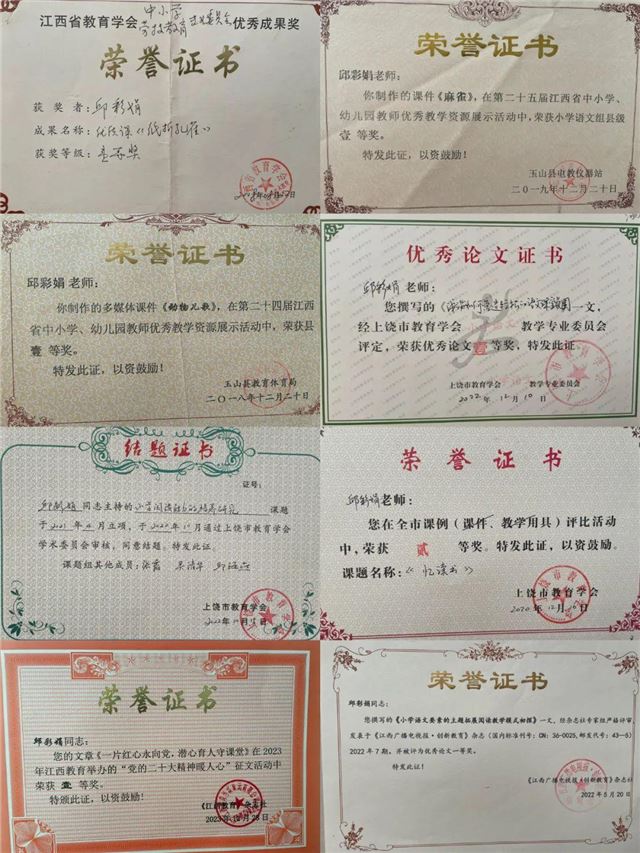 江西省教育学会 中小学劳技教育 专业委员会 优秀成果奖
荣誉证书
获奖者：邱彩娟
成果名称：优质课《纸折孔雀》
获奖等级：壹等奖
荣誉证书
邱彩娟老师：
你制作的课件《麻雀》，在第二十五届江西省中小学、
幼儿园教师优秀教学资源展示活动中，荣获小学语文组县级
壹 等奖。
特发此证，以资鼓励！
玉山县电教仪器站
二〇一九年十二月二十日
荣誉证书
邱彩娟 老师：
你制作的多媒体课件《动物儿歌》，在第二十四届江西
省中小学、幼儿园教师优秀教学资源展示活动中，荣获县
壹 等奖。
特发此证，以资鼓励！
玉山县教育体育局
二〇一八年十二月二十日
优秀论文证书
邱彩娟 老师：
您撰写的 一文，
经上饶市教育学会 教学专业委员会
评定，荣获优秀论文壹等奖，特发此证。
上饶市教育学会 教学专业委员会
2022年12月10日
结题证书
证号：
邱彩娟 同志主持的 小学 培养研究 课题
于2021年 月立项，于 年 月通过上饶市教育学会
学术委员会审核，同意结题。特发此证。
课题组其他成员：
上饶市教育学会
荣誉证书
邱彩娟老师：
您在全市课例（课件、教学用具）评比活动
中，荣获 贰 等奖。特发此证，以资鼓励。
课题名称：《忆读书》
上饶市教育学会
2020年12月10日
荣誉证书
邱彩娟同志：
您的文章《一片红心永向党，潜心育人守课堂》在2023
年江西教育举办的“党的二十大精神暖人心”征文活动中
荣获 壹 等奖。
特颁此证，以资鼓励！
《江西教育》杂志社
2023年10月28日
荣誉证书
邱彩娟同志：
您撰写的《小学语文要素的主题拓展阅读教学模式初探》一文，经杂志社专家组严格评审
发表于《江西广播电视报·创新教育》杂志（国内标准刊号：CN：36-0025，邮发代号：43-6）
2022年7期。并被评为优秀论文一等奖。
特发此证！
《江西广播电视报·创新教育》杂志社
2022年5月20日